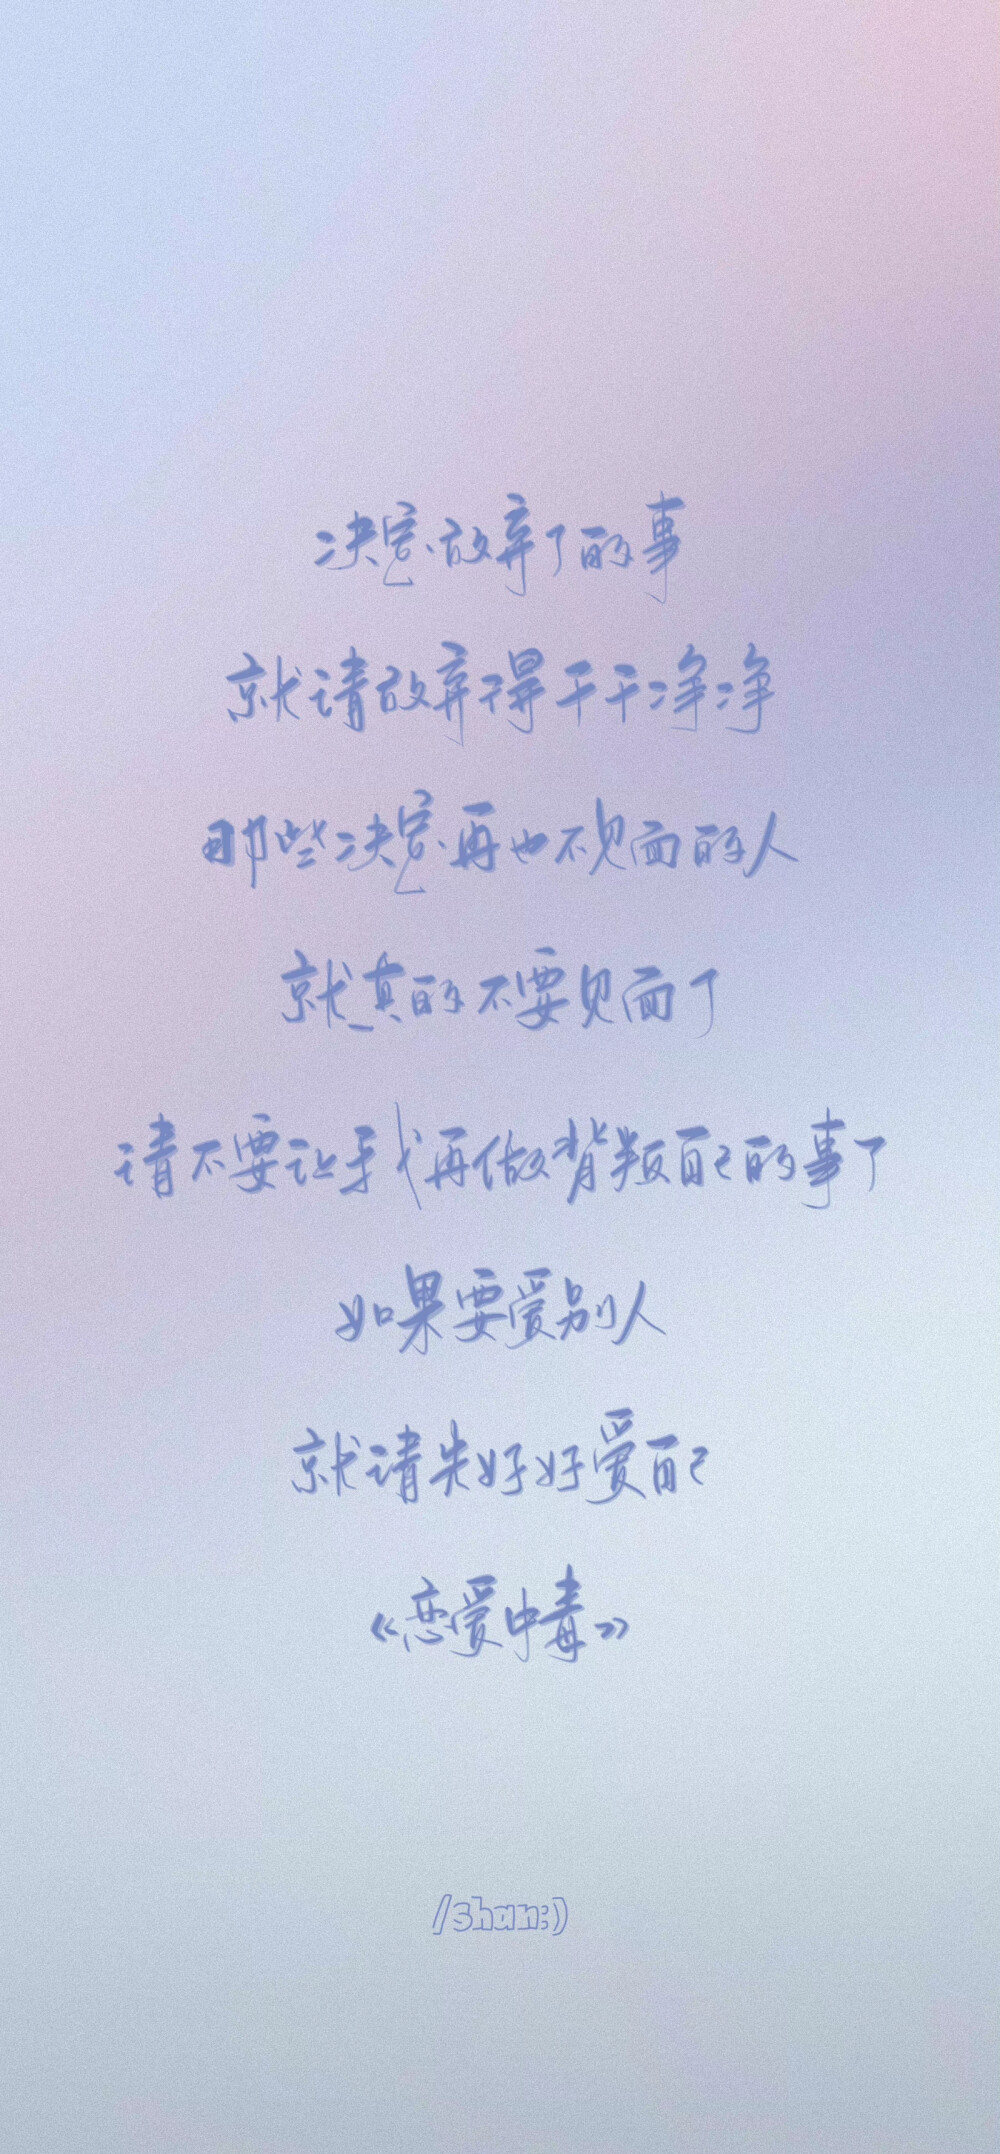 决定放弃了的事
就请放弃得干干净净
那些决定再也不见面的人
就真的不要见面了
请不要让我再做背叛自己的事了
如果要爱别人
就请先好好爱自己
《恋爱中毒》
/shan:)